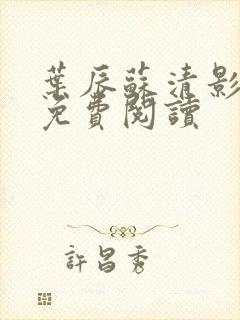 葉辰蘇清影
免費閱讀
許昌秀